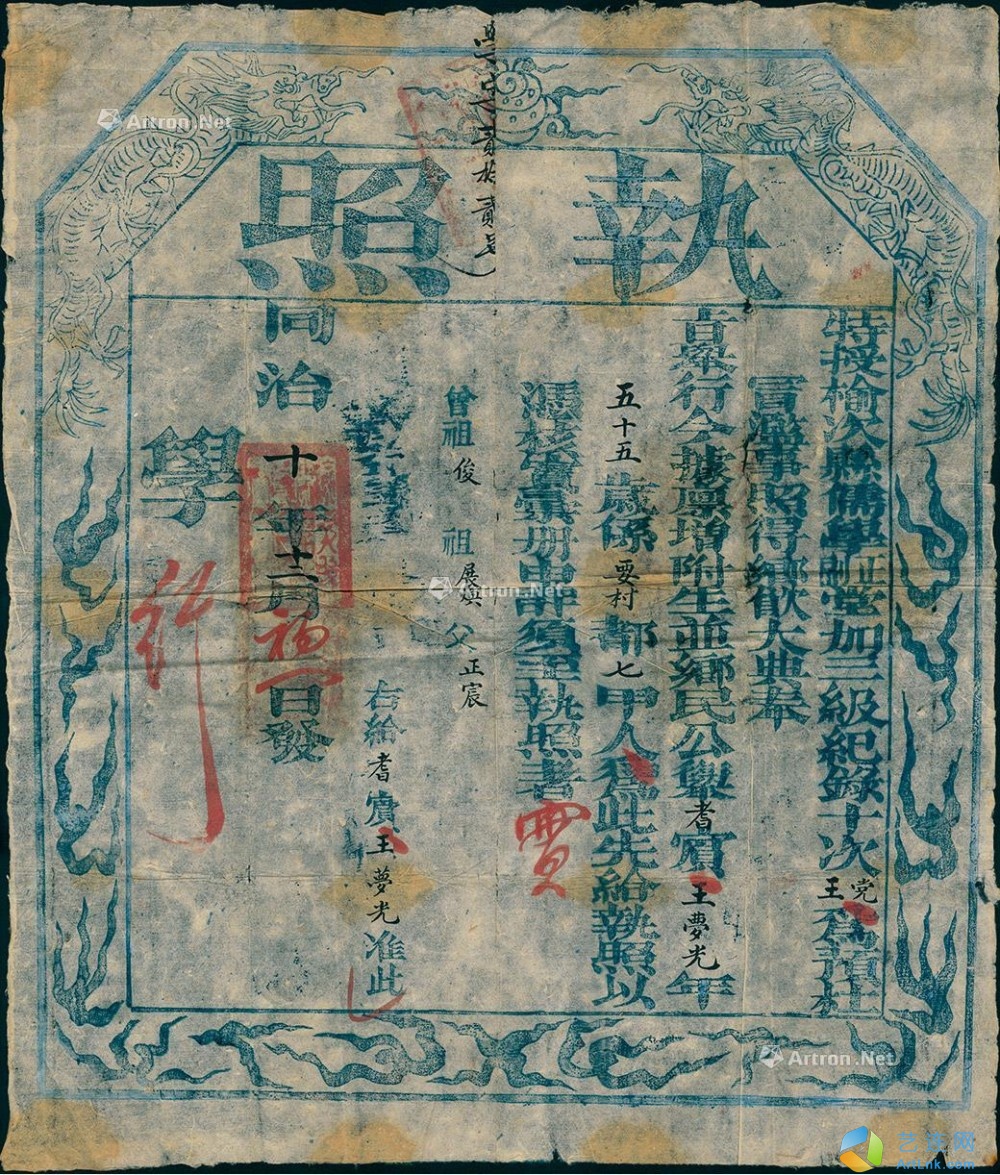 執照
特授榆次縣儒學正堂加三級紀錄十次党王為預杜
冒濫事照得鄉飲大典奉
旨舉行今據廪增附生並鄉民公舉耆賔王夢光年
五十五歲係要村都七甲人為此先給執照以
憑核實彙册申詳須至執照者
曾祖俊祖展煥父正宸
右給耆賔王夢光准此
同治十年十二月初一日發
學
行
Artron.Net
Artron.Net
Artron.Net
Artron.Net